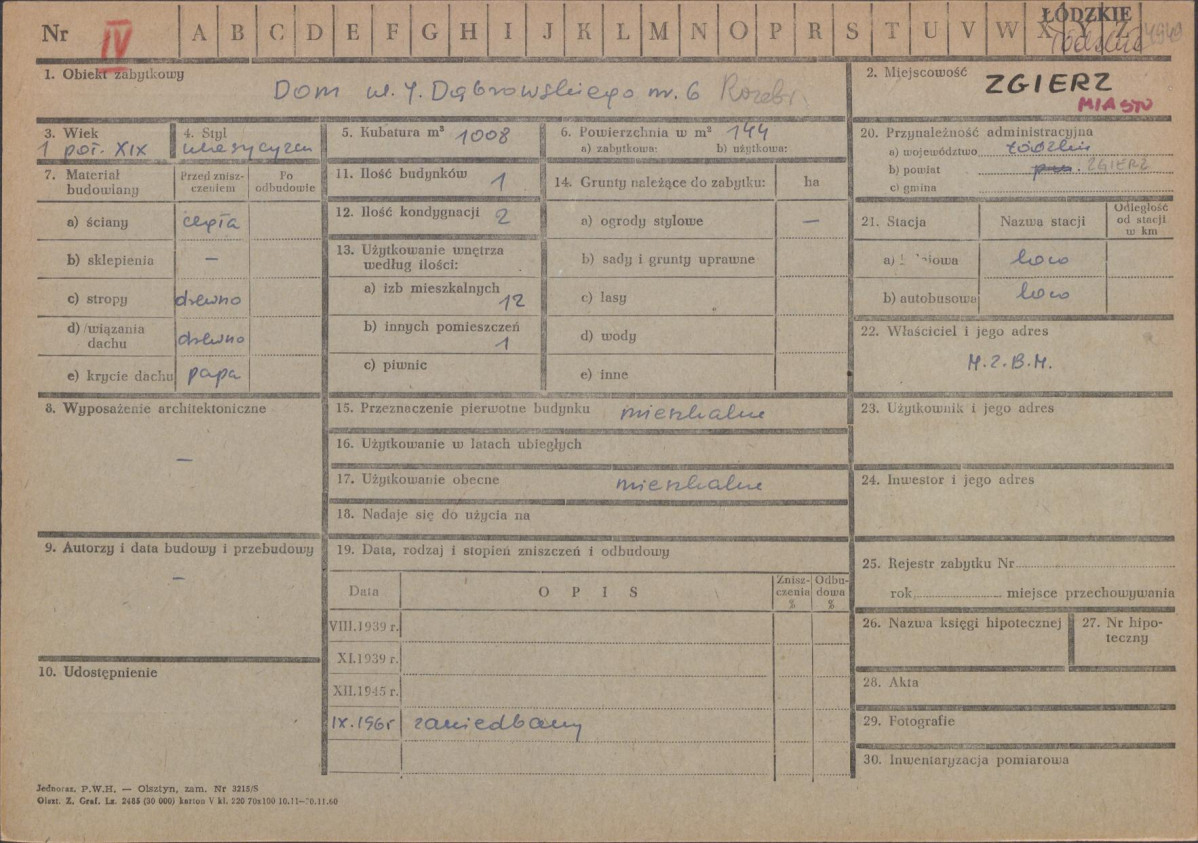 Nr IV A B C D E F G H I J K L M N O P R S T U V W X Y Z ŁÓDZKIE
4949
1. Obiekt zabytkowy
Dom ul. J. Dąbrowskiego nr. 6 Rozebr.
2. Miejscowość
ZGIERZ
MIASTO
3. Wiek
1 poł. XIX
4. Styl
5. Kubatura m³ 1008
6. Powierzchnia w m² 144
a) zabytkowa: b) użytkowa:
7. Materiał budowlany
Przed zniszczeniem
Po odbudowie
a) ściany cegła
b) sklepienia –
c) stropy drewno
d) wiązania dachu drewno
e) krycie dachu papa
8. Wyposażenie architektoniczne
–
9. Autorzy i data budowy i przebudowy
–
10. Udostępnienie
11. Ilość budynków 1
12. Ilość kondygnacji 2
13. Użytkowanie wnętrza
według ilości:
a) izb mieszkalnych
12
b) innych pomieszczeń
1
c) piwnic
14. Grunty należące do zabytku: ha
a) ogrody stylowe –
b) sady i grunty uprawne
c) lasy
d) wody
e) inne
15. Przeznaczenie pierwotne budynku mieszkalne
16. Użytkowanie w latach ubiegłych
17. Użytkowanie obecne mieszkalne
18. Nadaje się do użycia na
19. Data, rodzaj i stopień zniszczeń i odbudowy
Data OPIS Zniszczenia % Odbudowa %
VIII.1939 r.
XI.1939 r.
XII.1945 r.
IX.1965 zaniedbany
20. Przynależność administracyjna
a) województwo łódzkie
b) powiat ZGIERZ
c) gmina
21. Stacja Nazwa stacji Odległość od stacji w km
a) loco
b) autobusowa loco
22. Właściciel i jego adres
M.Z.B.M.
23. Użytkownik i jego adres
24. Inwestor i jego adres
25. Rejestr zabytku Nr
rok, miejsce przechowywania
26. Nazwa księgi hipotecznej
27. Nr hipoteczny
28. Akta
29. Fotografie
30. Inwentaryzacja pomiarowa
Jednoraz. P.W.H. — Olsztyn, zam. Nr 3215/S
Olszt. Z. Graf. Lz. 2485 (30 000) karton V kl. 220 70x100 10.11—